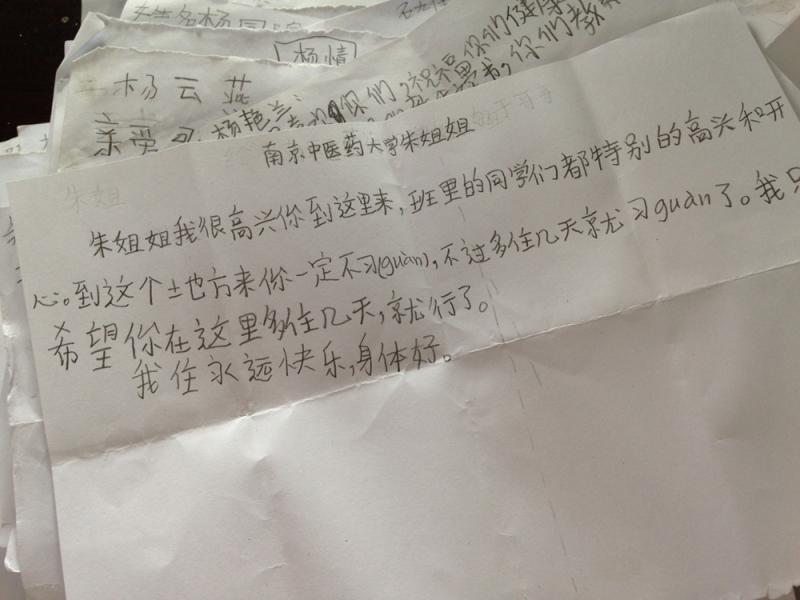 杨情
杨云燕
亲爱
杨艳兰:
你们,祝福你们健康
你们教
南京中医药大学朱姐姐
朱姐
朱姐姐我很高兴你到这里来,班里的同学们都特别的高兴和开
心。到这个土也方来你一定不习(guàn),不过多住几天就习guàn了。我只
希望你在这里多住几天,就行了。
我住永远快乐,身体好。